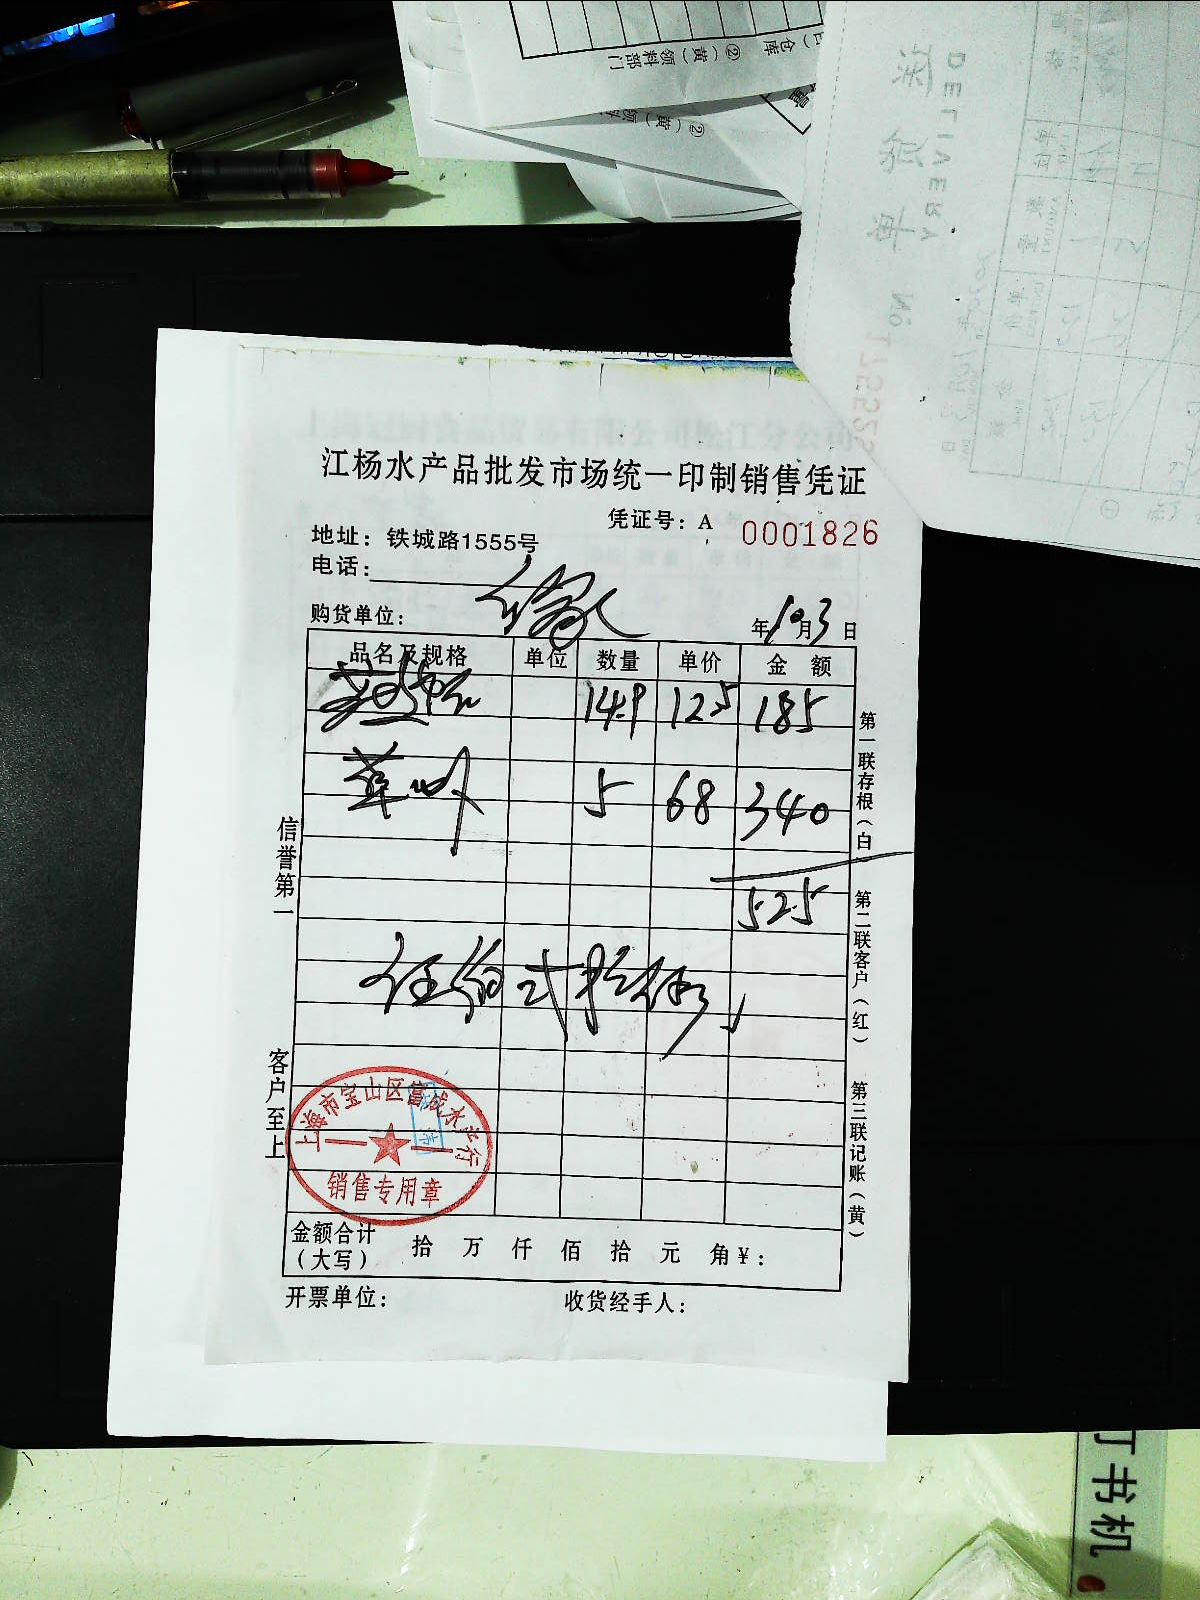 ②（黄）领料部门
白）仓库
②（黄）领料
送货单
DELIVERY
No 1755525
江杨水产品批发市场统一印制销售凭证
凭证号：A 0001826
地址：铁城路1555号
电话：
购货单位：
年10月3日
品名及规格 单位 数量 单价 金额
14.9 12.5 185
5 68 340
525
伍佰贰拾伍
信誉第一
客户至上
第一联存根（白）
第二联客户（红）
第三联记账（黄）
上海市宝山区富成水产行
销售专用章
金额合计
（大写）
拾 万 仟 佰 拾 元 角 ¥：
开票单位：
收货经手人：
订书机